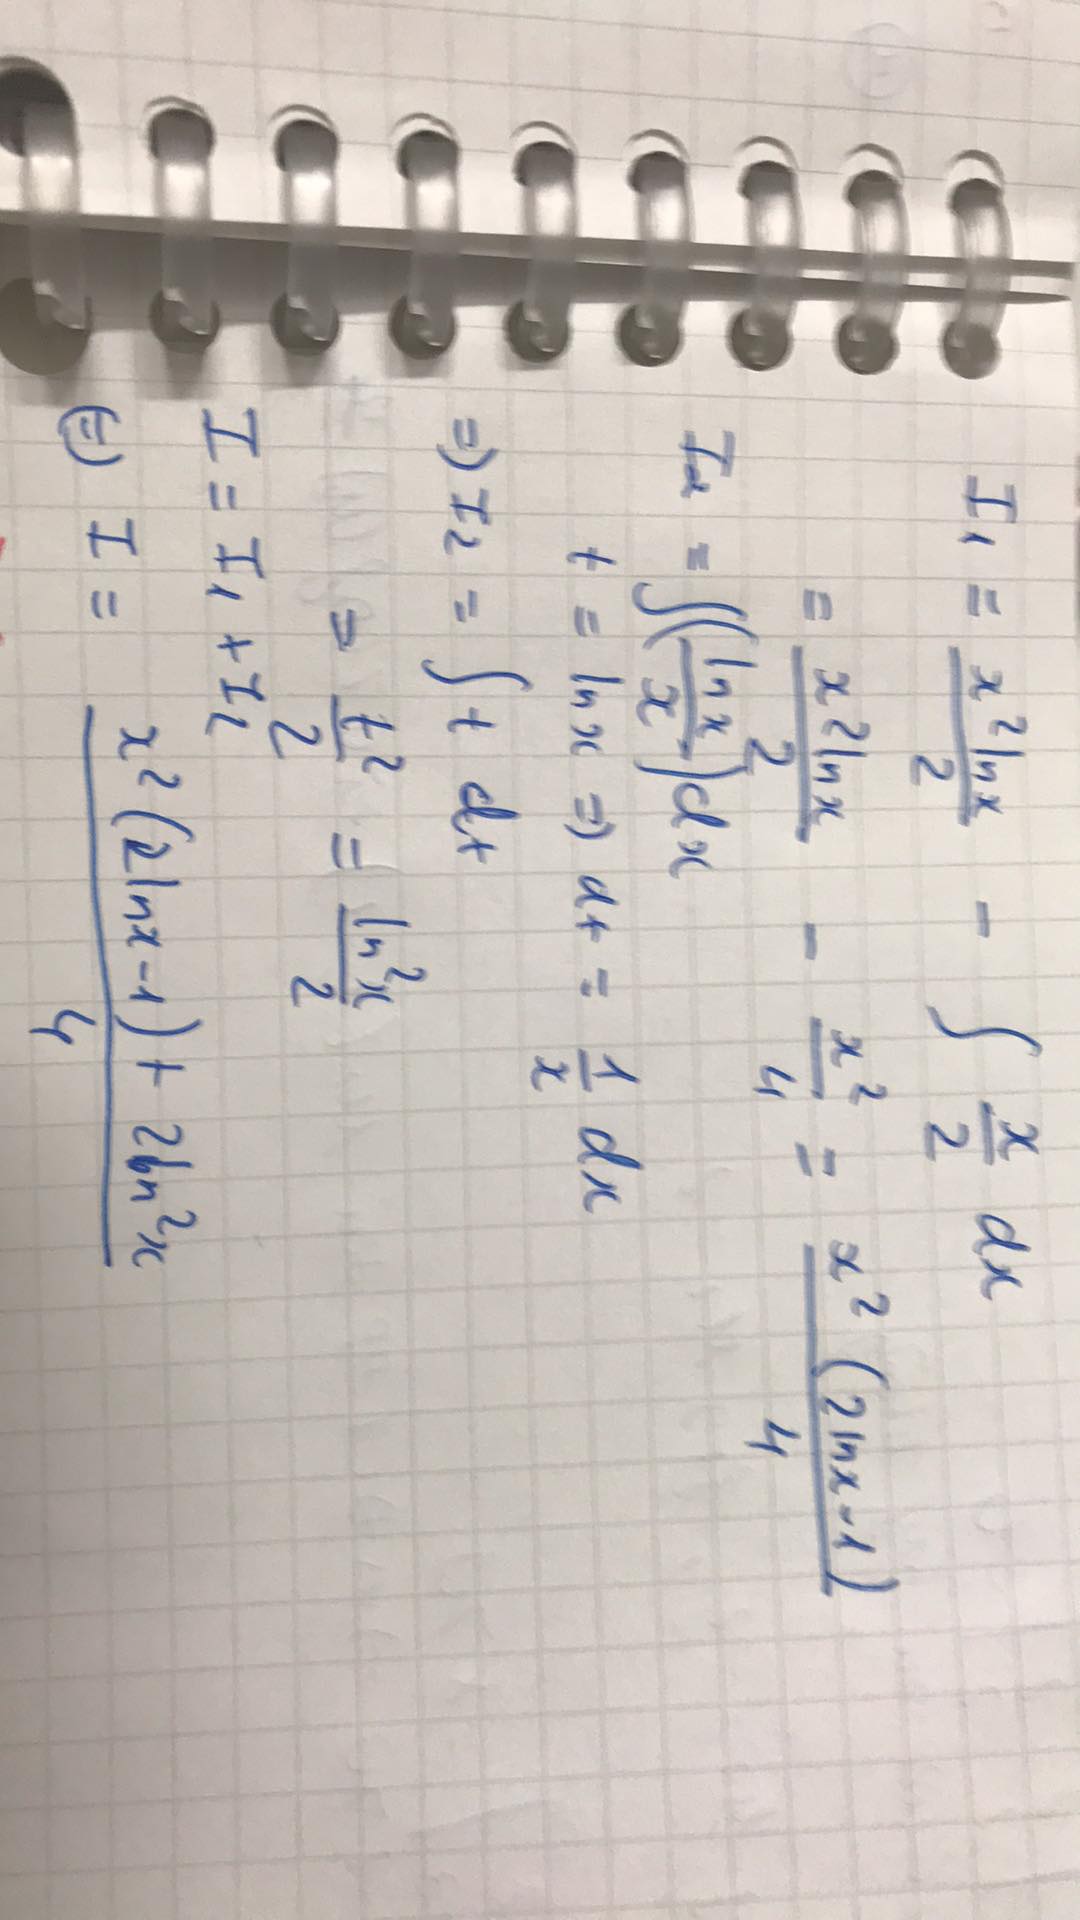 I₁ = x² ln x / 2 - ∫ x/2 dx
= x² ln x / 2 - x²/4 = x² (2 ln x - 1) / 4
I₂ = ∫ (ln x / x) dx
t = ln x => dt = 1/x dx
=> I₂ = ∫ t dt
= t²/2 = ln² x / 2
I = I₁ + I₂
(=) I = x² (2 ln x - 1) + 2 ln² x / 4